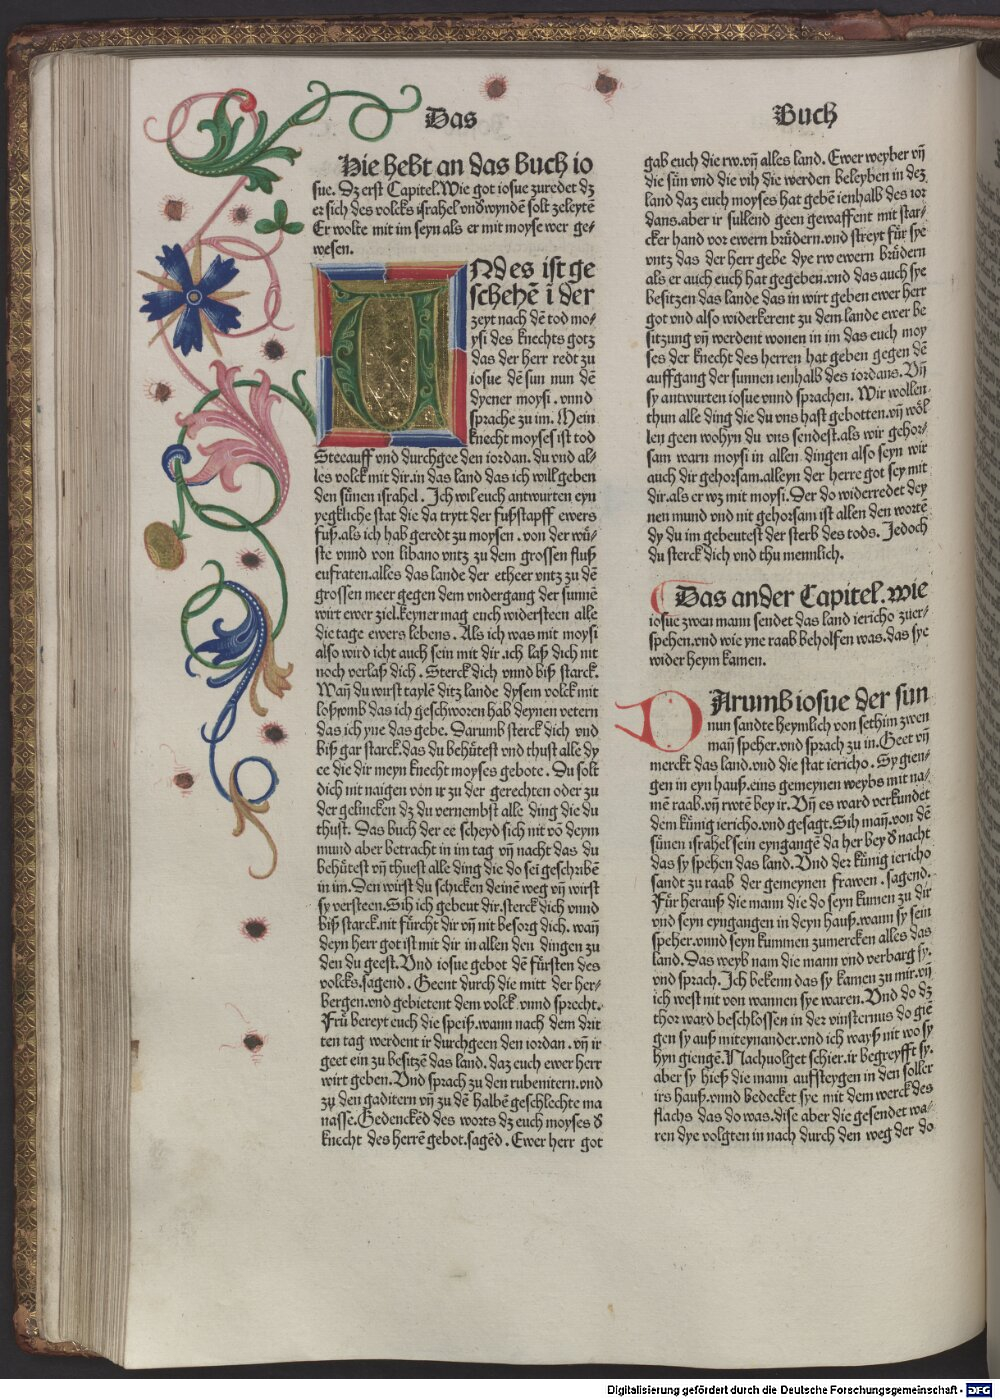 Das
Buch
Hie hebt an das Buch io
sue. Dz erst Capitel. Wie got iosue zuredet dz
er sich des volcks israhel vnd wyndē solt zeleytē
Er wolte mit im seyn als er mit moyse wer ge⸗
wesen.
UNd es ist ge
schehē i der
zeyt nach dē tod mo⸗
ysi des knechts gotz
das der herr redt zu
iosue dē sun nun dē
dyener moysi . vnnd
sprache zu im. Mein
knecht moyses ist tod
Steeauff vnd durchgee den iordan. du vnd al⸗
les volck mit dir.in das land das ich will geben
den sünen israhel . Ich wil euch antwurten eyn
yegkliche stat die da trytt der fußstapff ewers
fuß.als ich hab geredt zu moysen . von der wü⸗
ste vnnd von libano vntz zu dem grossen fluß
eufraten.alles das lande der etheer vntz zu dē
grossen meer gegen dem vndergang der sunnē
wirt ewer ziel.keyner mag euch widersteen alle
die tage ewers lebens . Als ich was mit moysi
also wird icht auch sein mit dir .ich laß dich nit
noch verlaß dich . Sterck dich vnnd biß starck.
Wañ du wirst taylē ditz lande dysem volck mit
loß.vmb das ich geschworen hab deynen vetern
das ich yne das gebe. Darumb sterck dich vnd
biß gar starck.das du behütest vnd thust alle dy
ee die dir meyn knecht moyses gebote . Du solt
dich nit naigen von ir zu der gerechten oder zu
der gelincken dz du vernembst alle ding die du
thust. Das buch der ee scheyd sich nit vō deym
mund aber betracht in im tag vñ nacht das du
behütest vñ thuest alle ding die do sei geschribē
in im.Den wirst du schicken deinē weg vñ wirst
sy versteen.Sih ich gebeut dir.sterck dich vnnd
biß starck.nit fürcht dir vñ nit besorg dich. wañ
deyn herr got ist mit dir in allen den dingen zu
den du geest.Vnd iosue gebot dē fürsten des
volcks.sagend . Geent durch die mitt der her⸗
bergen.vnd gebietent dem volck vnnd sprecht.
Frü bereyt euch die speiß.wann nach dem drit
ten tag werdent ir durchgeen den iordan . vñ ir
geet ein zu besitzē das land. daz euch ewer herr
wirt geben. Vnd sprach zu den rubenitern.vnd
zu den gaditern vñ zu dē halbē geschlechte ma
nasse.Gedenckēd des worts dz euch moyses d
knecht des herrē gebot.sagēd . Ewer herr got
gab euch die rw.vñ alles land. Ewer weyber vñ
die sün vnd die vih die werden beleyben in dez
land daz euch moyses hat gebē ienhalb des ior
dans.aber ir sullend geen gewaffent mit star⸗
cker hand vor ewern brüdern.vnd streyt für sye
vntz das der herr gebe dye rw ewern brüdern
als er auch euch hat gegeben.vnd das auch sye
besitzen das lande das in wirt geben ewer herr
got vnd also widerkerent zu dem lande ewer be
sitzung vñ werdent wonen in im das euch moy
ses der knecht des herren hat geben gegen dē
auffgang der sunnen ienhalb des iordans. Vñ
sy antwurten iosue vnnd sprachen. Wir wollen
thun alle ding die du vns hast gebotten.vñ wöl
len geen wohyn du vns sendest.als wir gehor⸗
sam warn moysi in allen dingen also seyn wir
auch dir gehorsam.alleyn der herre got sey mit
dir.als er wz mit moysi. Der do widerredet dey
nen mund vnd nit gehorsam ist allen den wortē
dy du im gebeutest der sterb des tods. Jedoch
du sterck dich vnd thu mennlich.
Das ander Capitel. wie
iosue zwen mann sendet das land iericho zuer⸗
spehen.vnd wie yne raab beholfen was.das sye
wider heym kamen.
DArumb iosue der sun
nun sandte heymlich von sethim zwen
mañ speher.vnd sprach zu in.Geet vñ
merckt das land.vnd die stat iericho . Sy gien⸗
gen in eyn hauß.eins gemeynen weybs mit na⸗
mē raab.vñ rwtē bey ir. Vñ es ward verkundet
dem künig iericho.vnd gesagt.Sih mañ.von dē
sünen israhel sein eyngangē da her bey d nacht
das sy spehen das land.Vnd der künig iericho
sandt zu raab der gemeynen frawen . sagend.
Für herauß die mann die do seyn kumen zu dir
vnd seyn eyngangen in deyn hauß.wann sy sein
speher.vnnd seyn kummen zumercken alles das
land.Das weyb nam die mann vnd verbarg sy.
vnd sprach.Ich bekenn das sy kamen zu mir.vñ
ich west nit von wannen sye waren.Vnd do dz
thor ward beschlossen in der vinsternus do giē
gen sy auß miteynander.vnd ich wayß nit wo sy
hyn giengē.Nachuolget schier.ir begreyfft sy.
aber sy hieß die mann auffsteygen in den soller
irs hauß.vnnd bedecket sye mit dem werck des
flachs das do was.dise aber die gesendet wa⸗
ren dye volgten in nach durch den weg der do
Digitalisierung gefördert durch die Deutsche Forschungsgemeinschaft - DFG